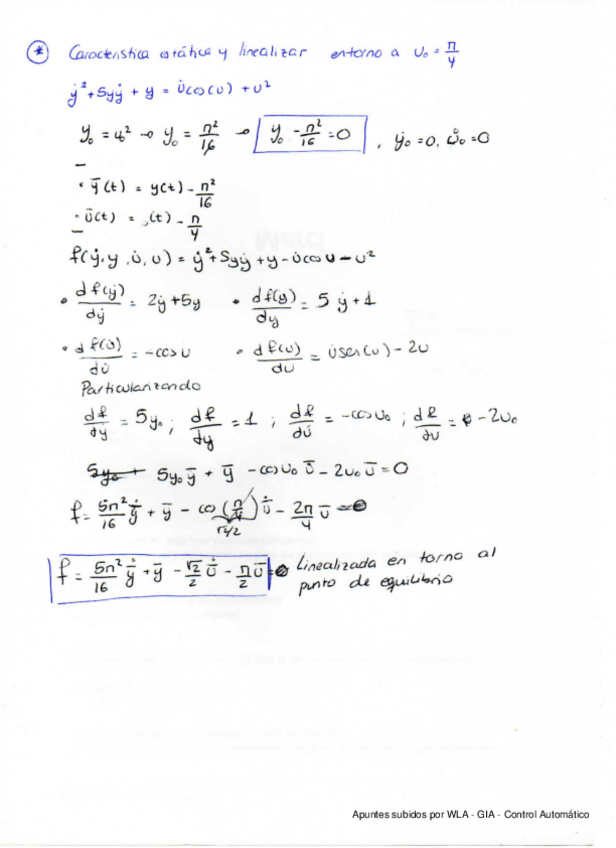 * Característica estática y linealizar entorno a u₀ = π/4
ẏ² + 5yẏ + y = u̇cos(u) + u²
y₀ = u₀² → y₀ = π²/16 → y₀ - π²/16 = 0 , ẏ₀ = 0, u̇₀ = 0
· ȳ(t) = y(t) - π²/16
· ū(t) = (t) - π/4
f(ẏ, y, u̇, u) = ẏ² + 5yẏ + y - u̇cos u - u²
• df(ẏ)/dẏ = 2ẏ + 5y • df(y)/dy = 5ẏ + 1
• df(u̇)/du̇ = -cos u • df(u)/du = u̇sen(u) - 2u
Particularizando
df/dy = 5y₀ ; df/dy = 1 ; df/du̇ = -cos u₀ ; df/du = - 2u₀
5y₀ + 5y₀ ȳ + ȳ - cos u₀ ū - 2u₀ ū = 0
f = 5π²/16 ẏ + ȳ - cos(π/4) u̇ - 2π/4 ū = 0
√2/2
f = 5π²/16 ẏ + ȳ - √2/2 u̇ - π/2 ū = 0 Linealizada en torno al
punto de equilibrio
Apuntes subidos por WLA - GIA - Control Automático